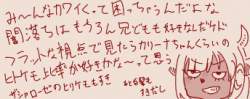 み〜んなカワイくって困っちゃうんだよな
闇落ちはもちろん兄どもも好きなしだケド
フラットな視点で見たらカリーナちゃんくらいの
ヒトケモ比率が好きかな〜って思う
ザシャローゼのヒトケモもすき